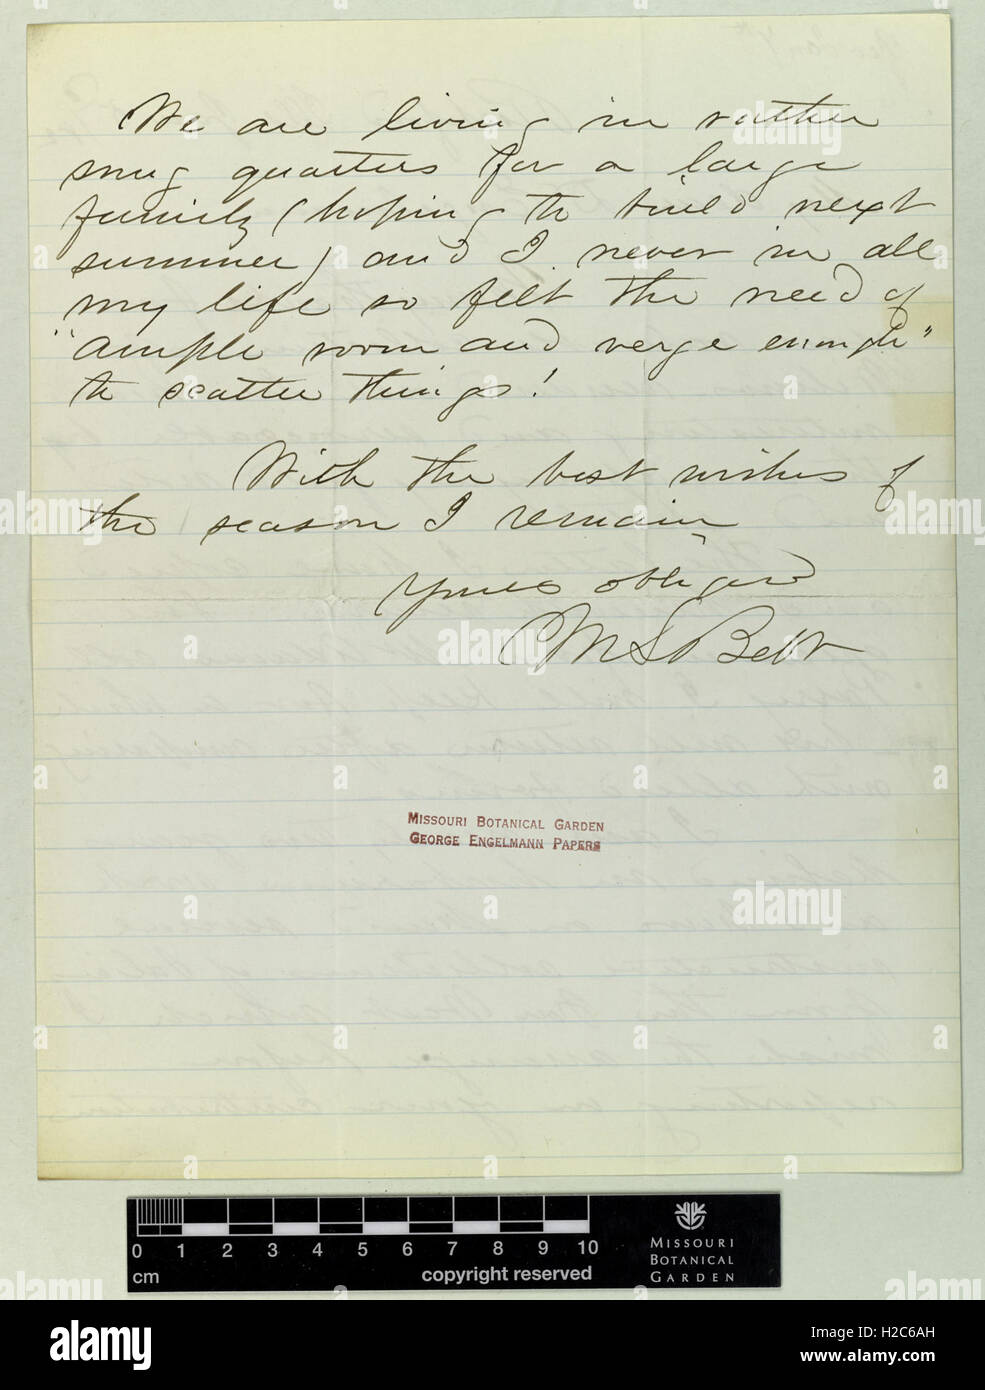 We are living in rather
snug quarters for a large
family (hoping to build next
summer) and I never in all
my life so felt the need of
"ample room and verge enough"
to scatter things!
With the best wishes of
the season I remain
Yours obliged
M S Bebb
MISSOURI BOTANICAL GARDEN
GEORGE ENGELMANN PAPERS
0 1 2 3 4 5 6 7 8 9 10
cm
copyright reserved
MISSOURI
BOTANICAL
GARDEN
alamy
Image ID: H2C6AH
www.alamy.com